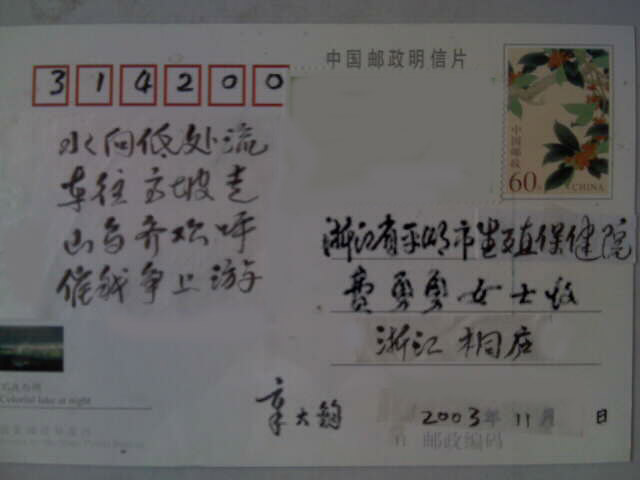 中国邮政明信片
314200
中国邮政
60分
CHINA
水向低处流
车往方坡走
山鸟齐欢呼
催我争上游
浙江省平湖市生殖保健院
费勇勇女士收
浙江 桐庐
Colorful lake at night
章大钧
2003年11月 日
邮政编码